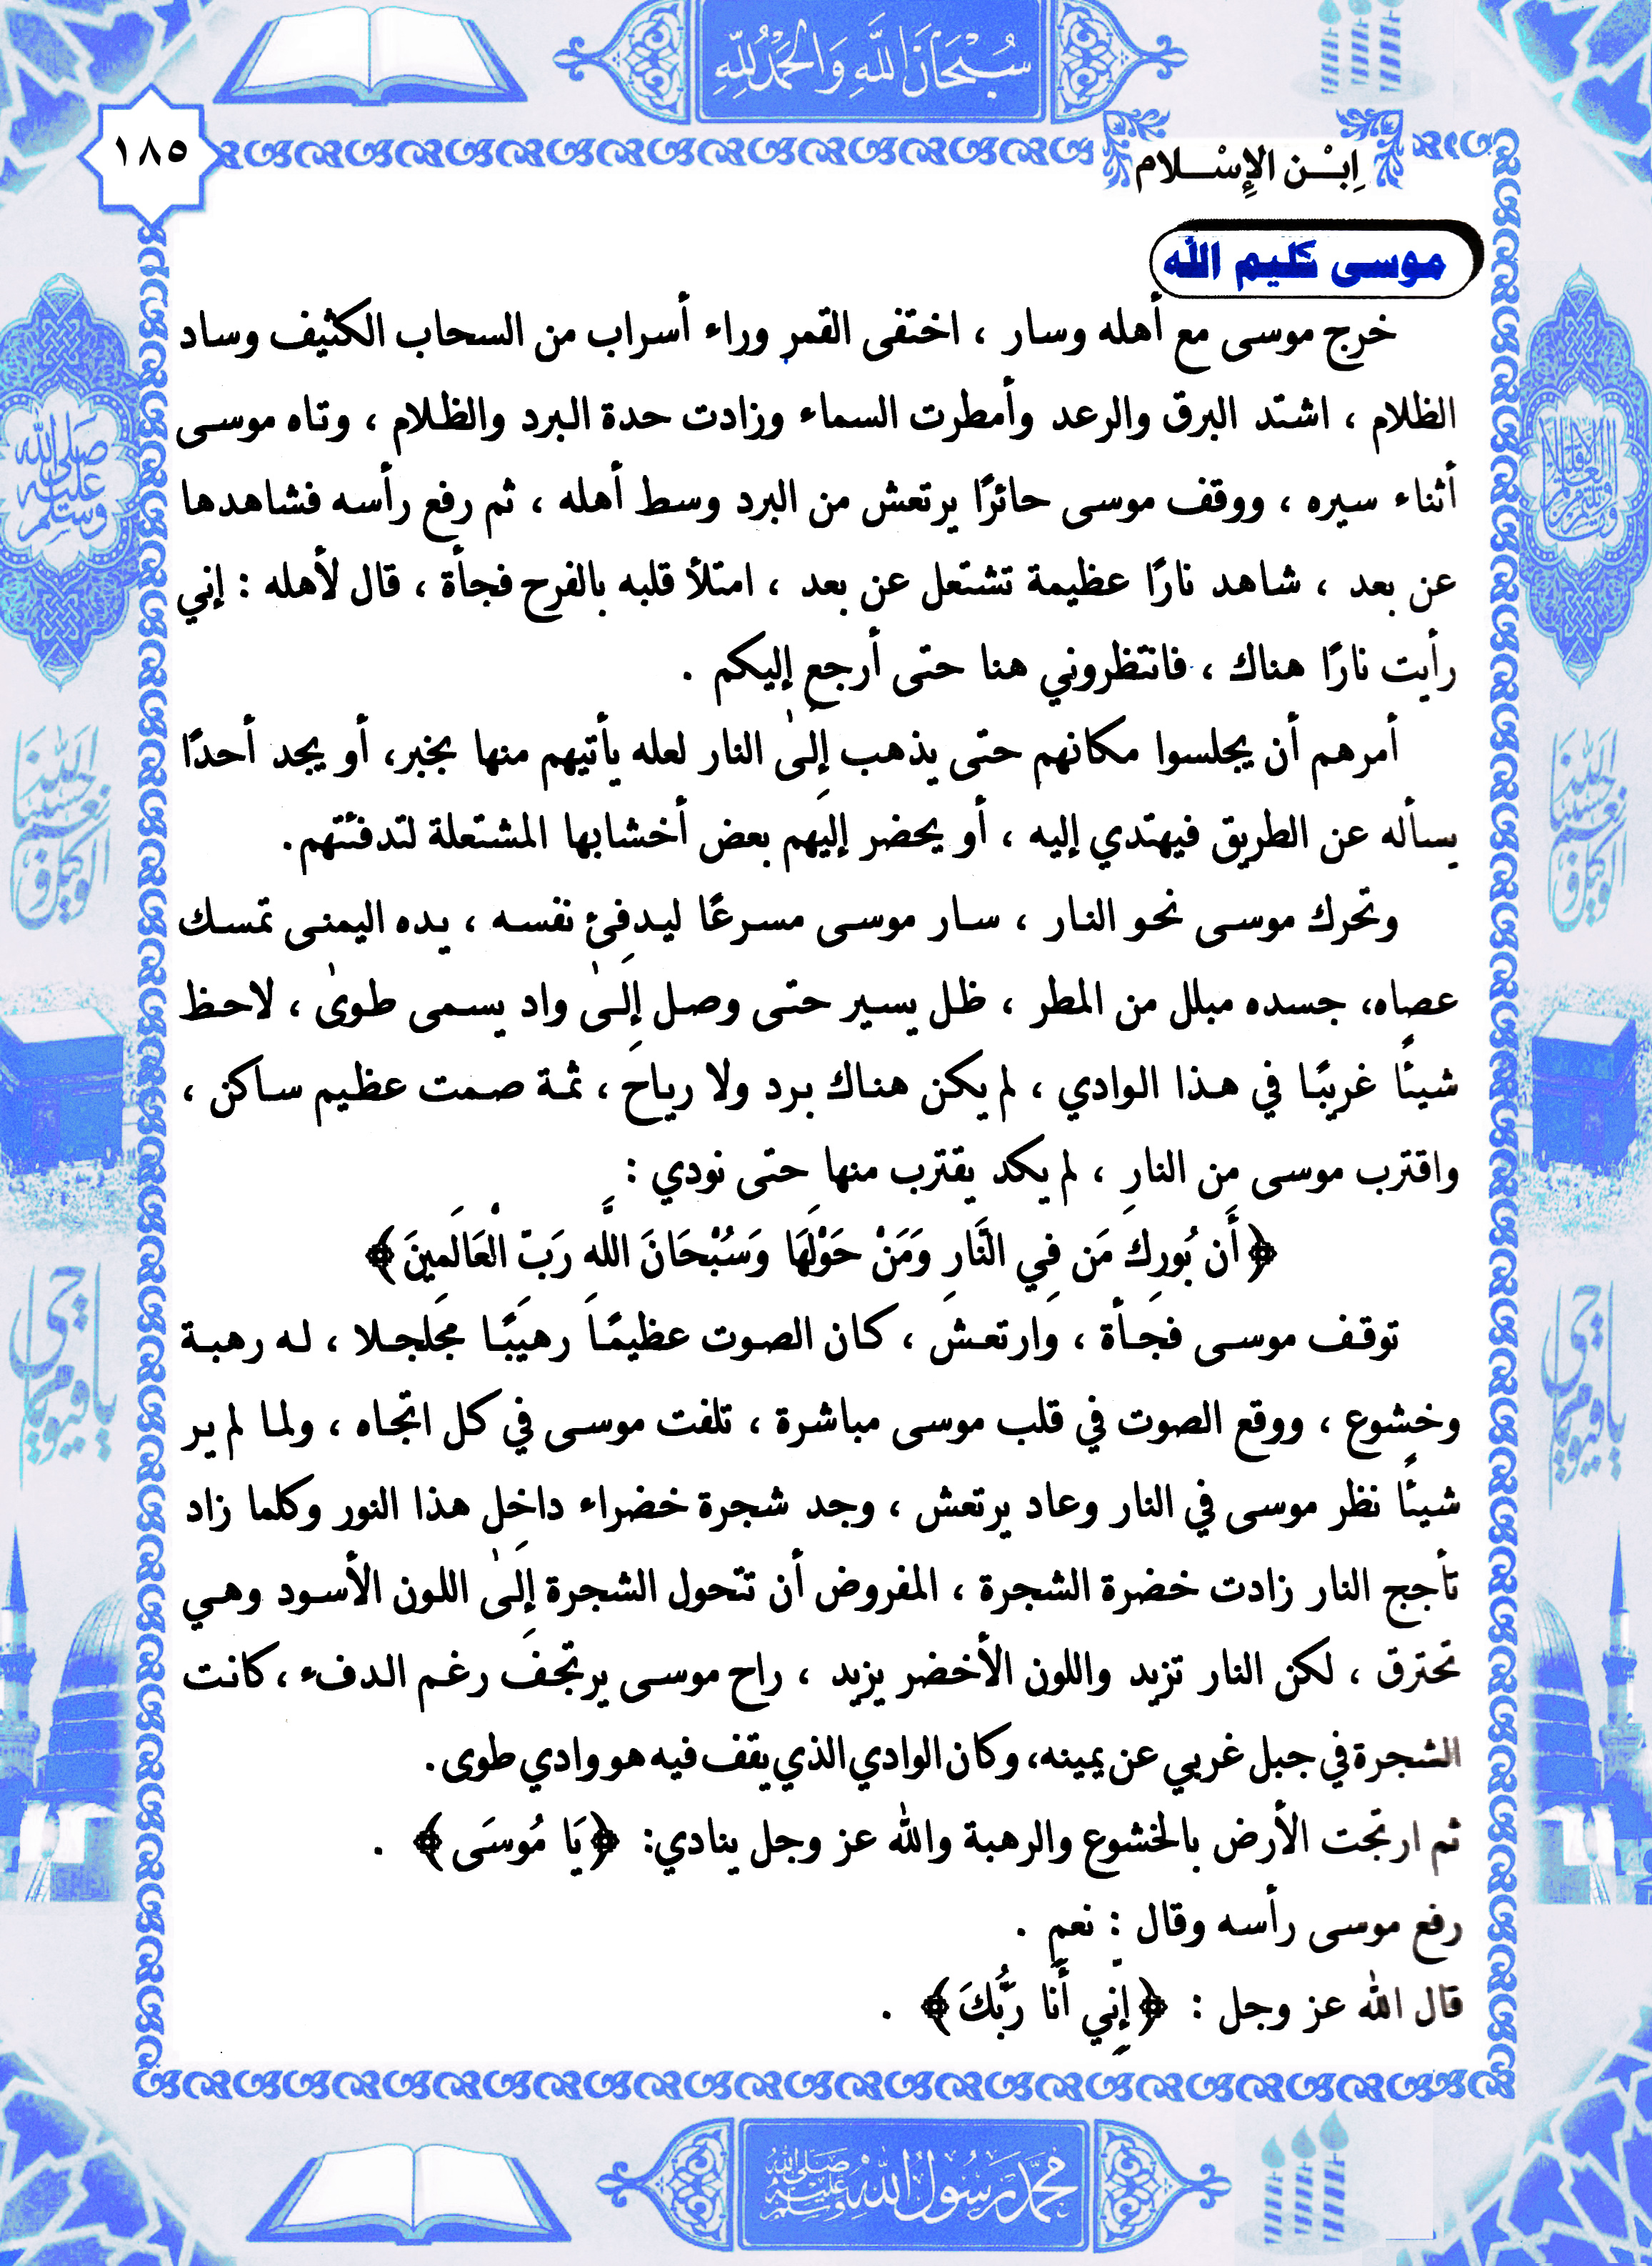 سُبْحَانَ اللَّهِ وَالْحَمْدُ لِلَّهِ
١٨٥
اِبْـن الإِسْـلام
موسى كليم الله
خرج موسى مع أهله وسار ، اختفى القمر وراء أسراب من السحاب الكثيف وساد
الظلام ، اشتد البرق والرعد وأمطرت السماء وزادت حدة البرد والظلام ، وتاه موسى
أثناء سيره ، ووقف موسى حائرًا يرتعش من البرد وسط أهله ، ثم رفع رأسه فشاهدها
عن بعد ، شاهد نارًا عظيمة تشتعل عن بعد ، امتلأ قلبه بالفرح فجأة ، قال لأهله : إني
رأيت نارًا هناك ، فانتظروني هنا حتى أرجع إليكم .
أمرهم أن يجلسوا مكانهم حتى يذهب إِلَىٰ النار لعله يأتيهم منها بخبر، أو يجد أحدًا
يسأله عن الطريق فيهتدي إليه ، أو يحضر إليهم بعض أخشابها المشتعلة لتدفئتهم.
وتحرك موسى نحو النار ، سار موسى مسرعًا ليدفئ نفسه ، يده اليمنى تمسك
عصاه، جسده مبلل من المطر ، ظل يسير حتى وصل إِلَىٰ واد يسمى طوىٰ ، لاحظ
شيئًا غريبًا في هذا الوادي ، لم يكن هناك برد ولا رياح ، ثمة صمت عظيم ساكن ،
واقترب موسى من النار ، لم يكد يقترب منها حتى نودي :
﴿أَن بُورِكَ مَن فِي النَّارِ وَمَنْ حَوْلَهَا وَسُبْحَانَ اللَّهِ رَبِّ الْعَالَمِينَ﴾
توقف موسى فجأة ، وارتعش ، كان الصوت عظيمًا رهيبًا مجلجلا ، له رهبة
وخشوع ، ووقع الصوت في قلب موسى مباشرة ، تلفت موسى في كل اتجاه ، ولما لم ير
شيئًا نظر موسى في النار وعاد يرتعش ، وجد شجرة خضراء داخل هذا النور وكلما زاد
تأجج النار زادت خضرة الشجرة ، المفروض أن تتحول الشجرة إِلَىٰ اللون الأسود وهي
تحترق ، لكن النار تزيد واللون الأخضر يزيد ، راح موسى يرتجف رغم الدفء ، كانت
الشجرة في جبل غربي عن يمينه، وكان الوادي الذي يقف فيه هو وادي طوى.
ثم ارتجت الأرض بالخشوع والرهبة والله عز وجل ينادي: ﴿يَا مُوسَى﴾ .
رفع موسى رأسه وقال : نعم .
قال الله عز وجل : ﴿إِنِّي أَنَا رَبُّكَ﴾ .
صلى الله عليه وسلم
حسبنا الله ونعم الوكيل
حسبنا الله ونعم الوكيل
يا حي يا قيوم
يا حي يا قيوم
محمد رسول الله صلى الله عليه وسلم